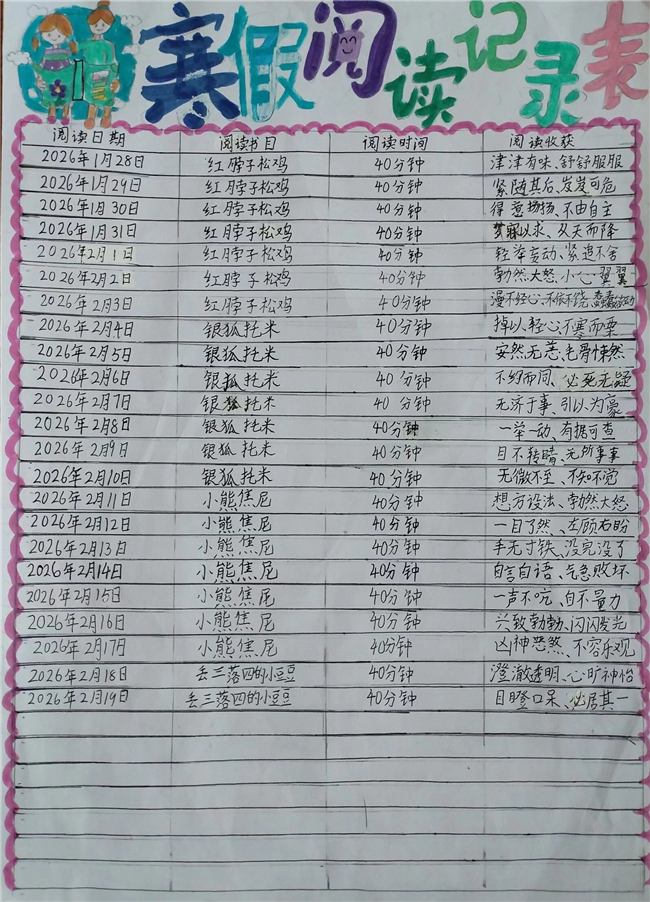 寒假阅读记录表
阅读日期 阅读书目 阅读时间 阅读收获
2026年1月28日 红脖子松鸡 40分钟 津津有味、舒舒服服
2026年1月29日 红脖子松鸡 40分钟 紧随其后、岌岌可危
2026年1月30日 红脖子松鸡 40分钟 得意扬扬、不由自主
2026年1月31日 红脖子松鸡 40分钟 梦寐以求、从天而降
2026年2月1日 红脖子松鸡 40分钟 轻举妄动、紧追不舍
2026年2月2日 红脖子松鸡 40分钟 勃然大怒、小心翼翼
2026年2月3日 红脖子松鸡 40分钟 漫不经心、不依不饶、蠢蠢欲动
2026年2月4日 银狐托米 40分钟 掉以轻心、不寒而栗
2026年2月5日 银狐托米 40分钟 安然无恙、毛骨悚然
2026年2月6日 银狐托米 40分钟 不约而同、必死无疑
2026年2月7日 银狐托米 40分钟 无济于事、引以为豪
2026年2月8日 银狐托米 40分钟 一举一动、有据可查
2026年2月9日 银狐托米 40分钟 目不转睛、无所事事
2026年2月10日 银狐托米 40分钟 无微不至、不知不觉
2026年2月11日 小熊焦尼 40分钟 想方设法、勃然大怒
2026年2月12日 小熊焦尼 40分钟 一目了然、左顾右盼
2026年2月13日 小熊焦尼 40分钟 手无寸铁、没完没了
2026年2月14日 小熊焦尼 40分钟 自言自语、气急败坏
2026年2月15日 小熊焦尼 40分钟 一声不吭、自不量力
2026年2月16日 小熊焦尼 40分钟 兴致勃勃、闪闪发光
2026年2月17日 小熊焦尼 40分钟 凶神恶煞、不容乐观
2026年2月18日 丢三落四的小豆豆 40分钟 澄澈透明、心旷神怡
2026年2月19日 丢三落四的小豆豆 40分钟 目瞪口呆、必居其一